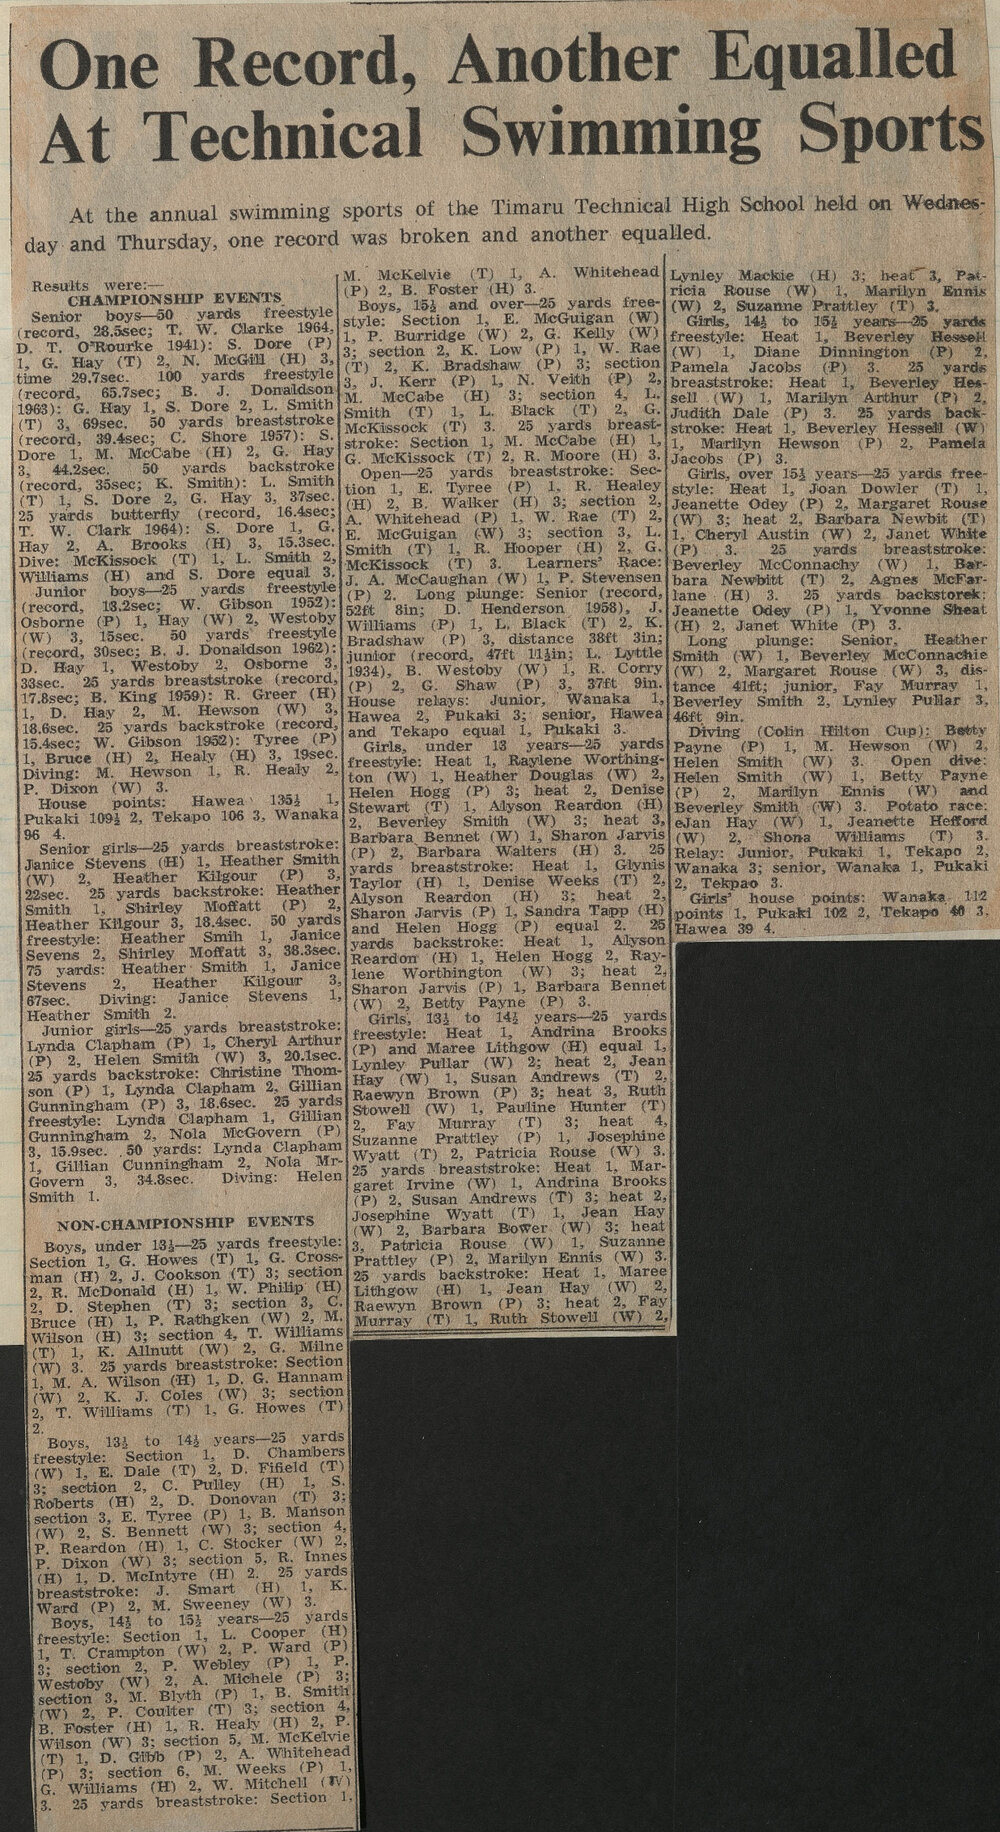 One Record, Another Equalled
At Technical Swimming Sports
At the annual swimming sports of the Timaru Technical High School held on Wednes-
day and Thursday, one record was broken and another equalled.
Results were:—
CHAMPIONSHIP EVENTS
Senior boys—50 yards freestyle
(record, 28.5sec; T. W. Clarke 1964,
D. T. O'Rourke 1941): S. Dore (P)
1, G. Hay (T) 2, N. McGill (H) 3,
time 29.7sec. 100 yards freestyle
(record, 65.7sec; B. J. Donaldson
1963): G. Hay 1, S. Dore 2, L. Smith
(T) 3, 69sec. 50 yards breaststroke
(record, 39.4sec; C. Shore 1957): S.
Dore 1, M. McCabe (H) 2, G. Hay
3, 44.2sec. 50 yards backstroke
(record, 35sec; K. Smith): L. Smith
(T) 1, S. Dore 2, G. Hay 3, 37sec.
25 yards butterfly (record, 16.4sec;
T. W. Clark 1964): S. Dore 1, G.
Hay 2, A. Brooks (H) 3, 15.3sec.
Dive: McKissock (T) 1, L. Smith 2,
Williams (H) and S. Dore equal 3.
Junior boys—25 yards freestyle
(record, 13.2sec; W. Gibson 1952):
Osborne (P) 1, Hay (W) 2, Westoby
(W) 3, 15sec. 50 yards freestyle
(record, 30sec; B. J. Donaldson 1962):
D. Hay 1, Westoby 2, Osborne 3,
33sec. 25 yards breaststroke (record,
17.8sec; B. King 1959): R. Greer (H)
1, D. Hay 2, M. Hewson (W) 3,
18.6sec. 25 yards backstroke (record,
15.4sec; W. Gibson 1952): Tyree (P)
1, Bruce (H) 2, Healy (H) 3, 19sec.
Diving: M. Hewson 1, R. Healy 2,
P. Dixon (W) 3.
House points: Hawea 135½ 1,
Pukaki 109½ 2, Tekapo 106 3, Wanaka
96 4.
Senior girls—25 yards breaststroke:
Janice Stevens (H) 1, Heather Smith
(W) 2, Heather Kilgour (P) 3,
22sec. 25 yards backstroke: Heather
Smith 1, Shirley Moffatt (P) 2,
Heather Kilgour 3, 18.4sec. 50 yards
freestyle: Heather Smih 1, Janice
Sevens 2, Shirley Moffatt 3, 38.3sec.
75 yards: Heather Smith 1, Janice
Stevens 2, Heather Kilgour 3,
67sec. Diving: Janice Stevens 1,
Heather Smith 2.
Junior girls—25 yards breaststroke:
Lynda Clapham (P) 1, Cheryl Arthur
(P) 2, Helen Smith (W) 3, 20.1sec.
25 yards backstroke: Christine Thom-
son (P) 1, Lynda Clapham 2, Gillian
Gunningham (P) 3, 18.6sec. 25 yards
freestyle: Lynda Clapham 1, Gillian
Gunningham 2, Nola McGovern (P)
3, 15.9sec. 50 yards: Lynda Clapham
1, Gillian Cunningham 2, Nola Mr-
Govern 3, 34.8sec. Diving: Helen
Smith 1.
NON-CHAMPIONSHIP EVENTS
Boys, under 13½—25 yards freestyle:
Section 1, G. Howes (T) 1, G. Cross-
man (H) 2, J. Cookson (T) 3; section
2, R. McDonald (H) 1, W. Philip (H)
2, D. Stephen (T) 3; section 3, C.
Bruce (H) 1, P. Rathgken (W) 2, M.
Wilson (H) 3; section 4, T. Williams
(T) 1, K. Allnutt (W) 2, G. Milne
(W) 3. 25 yards breaststroke: Section
1, M. A. Wilson (H) 1, D. G. Hannam
(W) 2, K. J. Coles (W) 3; section
2, T. Williams (T) 1, G. Howes (T)
2.
Boys, 13½ to 14½ years—25 yards
freestyle: Section 1, D. Chambers
(W) 1, E. Dale (T) 2, D. Fifield (T)
3; section 2, C. Pulley (H) 1, S.
Roberts (H) 2, D. Donovan (T) 3;
section 3, E. Tyree (P) 1, B. Manson
(W) 2, S. Bennett (W) 3; section 4,
P. Reardon (H) 1, C. Stocker (W) 2,
P. Dixon (W) 3; section 5, R. Innes
(H) 1, D. McIntyre (H) 2. 25 yards
breaststroke: J. Smart (H) 1, K.
Ward (P) 2, M. Sweeney (W) 3.
Boys, 14½ to 15½ years—25 yards
freestyle: Section 1, L. Cooper (H)
1, T. Crampton (W) 2, P. Ward (P)
3; section 2, P. Webley (P) 1, P.
Westoby (W) 2, A. Michele (P) 3;
section 3, M. Blyth (P) 1, B. Smith
(W) 2, P. Coulter (T) 3; section 4,
B. Foster (H) 1, R. Healy (H) 2, P.
Wilson (W) 3; section 5, M. McKelvie
(T) 1, D. Gibb (P) 2, A. Whitehead
(P) 3; section 6, M. Weeks (P) 1,
G. Williams (H) 2, W. Mitchell (W)
3. 25 yards breaststroke: Section 1,
M. McKelvie (T) 1, A. Whitehead
(P) 2, B. Foster (H) 3.
Boys, 15½ and over—25 yards free-
style: Section 1, E. McGuigan (W)
1, P. Burridge (W) 2, G. Kelly (W)
3; section 2, K. Low (P) 1, W. Rae
(T) 2, K. Bradshaw (P) 3; section
3, J. Kerr (P) 1, N. Veith (P) 2,
M. McCabe (H) 3; section 4, L.
Smith (T) 1, L. Black (T) 2, G.
McKissock (T) 3. 25 yards breast-
stroke: Section 1, M. McCabe (H) 1,
G. McKissock (T) 2, R. Moore (H) 3.
Open—25 yards breaststroke: Sec-
tion 1, E. Tyree (P) 1, R. Healey
(H) 2, B. Walker (H) 3; section 2,
A. Whitehead (P) 1, W. Rae (T) 2,
E. McGuigan (W) 3; section 3, L.
Smith (T) 1, R. Hooper (H) 2, G.
McKissock (T) 3. Learners' Race:
J. A. McCaughan (W) 1, P. Stevensen
(P) 2. Long plunge: Senior (record,
52ft 8in; D. Henderson 1958), J.
Williams (P) 1, L. Black (T) 2, K.
Bradshaw (P) 3, distance 38ft 3in;
junior (record, 47ft 11½in; L. Lyttle
1934), B. Westoby (W) 1, R. Corry
(P) 2, G. Shaw (P) 3, 37ft 9in.
House relays: Junior, Wanaka 1,
Hawea 2, Pukaki 3; senior, Hawea
and Tekapo equal 1, Pukaki 3.
Girls, under 13 years—25 yards
freestyle: Heat 1, Raylene Worthing-
ton (W) 1, Heather Douglas (W) 2,
Helen Hogg (P) 3; heat 2, Denise
Stewart (T) 1, Alyson Reardon (H)
2, Beverley Smith (W) 3; heat 3,
Barbara Bennet (W) 1, Sharon Jarvis
(P) 2, Barbara Walters (H) 3. 25
yards breaststroke: Heat 1, Glynis
Taylor (H) 1, Denise Weeks (T) 2,
Alyson Reardon (H) 3; heat 2,
Sharon Jarvis (P) 1, Sandra Tapp (H)
and Helen Hogg (P) equal 2. 25
yards backstroke: Heat 1, Alyson
Reardon (H) 1, Helen Hogg 2, Ray-
lene Worthington (W) 3; heat 2,
Sharon Jarvis (P) 1, Barbara Bennet
(W) 2, Betty Payne (P) 3.
Girls, 13½ to 14½ years—25 yards
freestyle: Heat 1, Andrina Brooks
(P) and Maree Lithgow (H) equal 1,
Lynley Pullar (W) 2; heat 2, Jean
Hay (W) 1, Susan Andrews (T) 2,
Raewyn Brown (P) 3; heat 3, Ruth
Stowell (W) 1, Pauline Hunter (T)
2, Fay Murray (T) 3; heat 4,
Suzanne Prattley (P) 1, Josephine
Wyatt (T) 2, Patricia Rouse (W) 3.
25 yards breaststroke: Heat 1, Mar-
garet Irvine (W) 1, Andrina Brooks
(P) 2, Susan Andrews (T) 3; heat 2,
Josephine Wyatt (T) 1, Jean Hay
(W) 2, Barbara Bower (W) 3; heat
3, Patricia Rouse (W) 1, Suzanne
Prattley (P) 2, Marilyn Ennis (W) 3.
25 yards backstroke: Heat 1, Maree
Lithgow (H) 1, Jean Hay (W) 2,
Raewyn Brown (P) 3; heat 2, Fay
Murray (T) 1, Ruth Stowell (W) 2,
Lynley Mackie (H) 3; heat 3, Pat-
ricia Rouse (W) 1, Marilyn Ennis
(W) 2, Suzanne Prattley (T) 3.
Girls, 14½ to 15½ years—25 yards
freestyle: Heat 1, Beverley Hessell
(W) 1, Diane Dinnington (P) 2,
Pamela Jacobs (P) 3. 25 yards
breaststroke: Heat 1, Beverley Hes-
sell (W) 1, Marilyn Arthur (P) 2,
Judith Dale (P) 3. 25 yards back-
stroke: Heat 1, Beverley Hessell (W)
1, Marilyn Hewson (P) 2, Pamela
Jacobs (P) 3.
Girls, over 15½ years—25 yards free-
style: Heat 1, Joan Dowler (T) 1,
Jeanette Odey (P) 2, Margaret Rouse
(W) 3; heat 2, Barbara Newbit (T)
1, Cheryl Austin (W) 2, Janet White
(P) 3. 25 yards breaststroke:
Beverley McConnachy (W) 1, Bar-
bara Newbitt (T) 2, Agnes McFar-
lane (H) 3. 25 yards backstorek:
Jeanette Odey (P) 1, Yvonne Sheat
(H) 2, Janet White (P) 3.
Long plunge: Senior, Heather
Smith (W) 1, Beverley McConnachie
(W) 2, Margaret Rouse (W) 3, dis-
tance 41ft; junior, Fay Murray 1,
Beverley Smith 2, Lynley Pullar 3,
46ft 9in.
Diving (Colin Hilton Cup): Betty
Payne (P) 1, M. Hewson (W) 2,
Helen Smith (W) 3. Open dive:
Helen Smith (W) 1, Betty Payne
(P) 2, Marilyn Ennis (W) and
Beverley Smith (W) 3. Potato race:
eJan Hay (W) 1, Jeanette Hefford
(W) 2, Shona Williams (T) 3.
Relay: Junior, Pukaki 1, Tekapo 2,
Wanaka 3; senior, Wanaka 1, Pukaki
2, Tekpao 3.
Girls' house points: Wanaka 112
points 1, Pukaki 102 2, Tekapo 40 3,
Hawea 39 4.